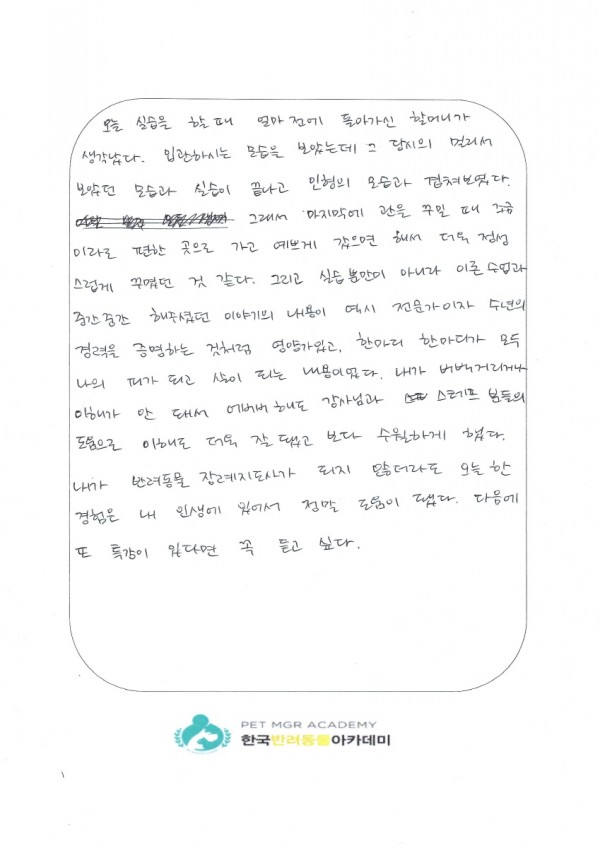 오늘 실습을 할 때 얼마 전에 돌아가신 할머니가
생각났다. 입관하시는 모습을 보았는데 그 당시의 멀리서
보았던 모습과 실습이 끝나고 인형의 모습과 겹쳐보였다.
그래서 마지막에 관을 꾸밀 때 조금
이라도 편한 곳으로 가고 예쁘게 갔으면 해서 더욱 정성
스럽게 꾸몄던 것 같다. 그리고 실습뿐만이 아니라 이론 수업과
중간중간 해주셨던 이야기의 내용이 역시 전문가이자 수년의
경력을 증명하는 것처럼 영양가있고, 한마디 한마디가 모두
나의 피가 되고 살이 되는 내용이었다. 내가 버벅거리거나
이해가 안 돼서 어버버 해도 강사님과 스태프 분들의
도움으로 이해도 더욱 잘 됐고 보다 수월하게 했다.
내가 반려동물 장례지도사가 되지 않더라도 오늘 한
경험은 내 인생에 있어서 정말 도움이 됐다. 다음에
또 특강이 있다면 꼭 듣고 싶다.
PET MGR ACADEMY
한국반려동물아카데미